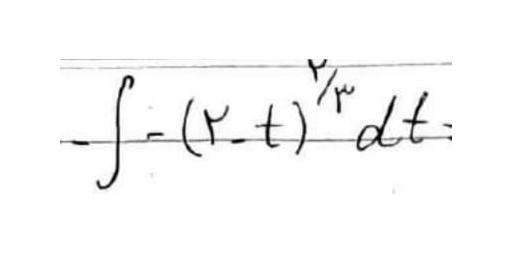 - ∫ -(۲-t)^{۲/۳} dt =